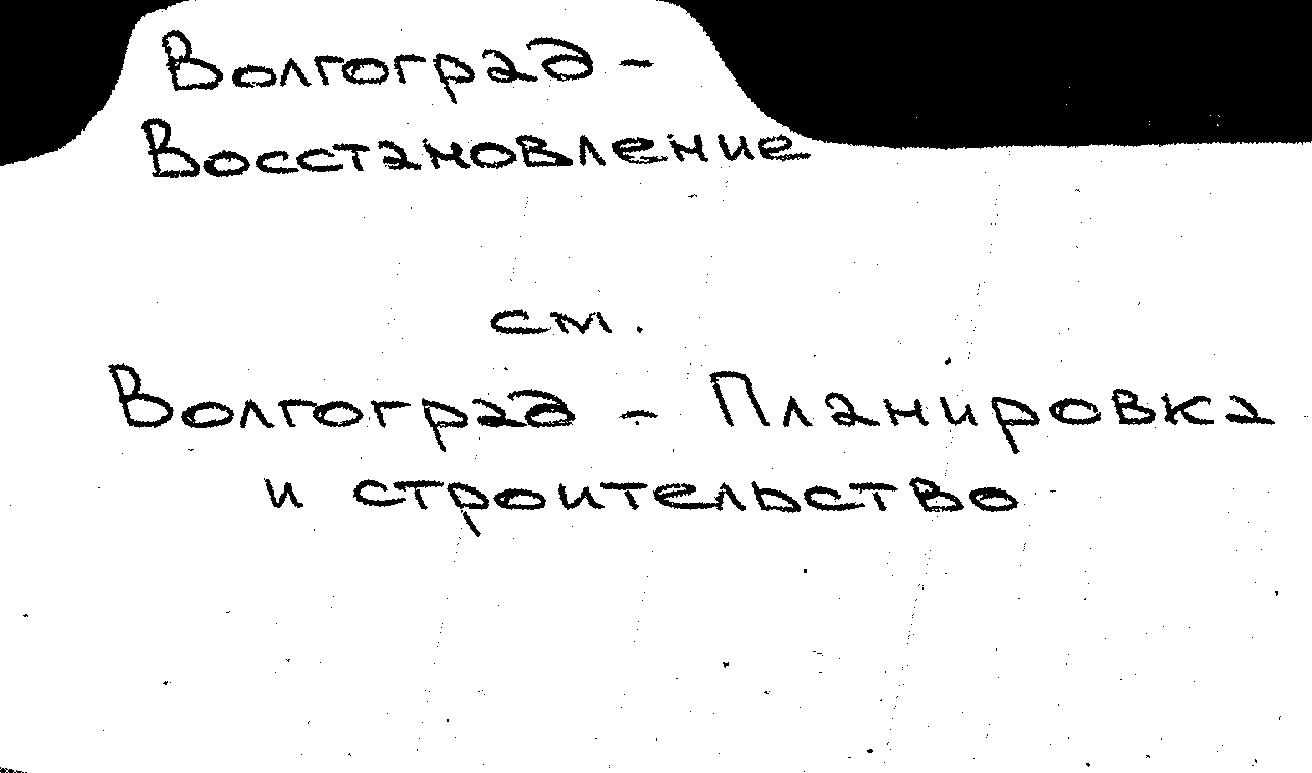 Волгоград -
Восстановление
ст.
Волгоград - Планировка
и строительство